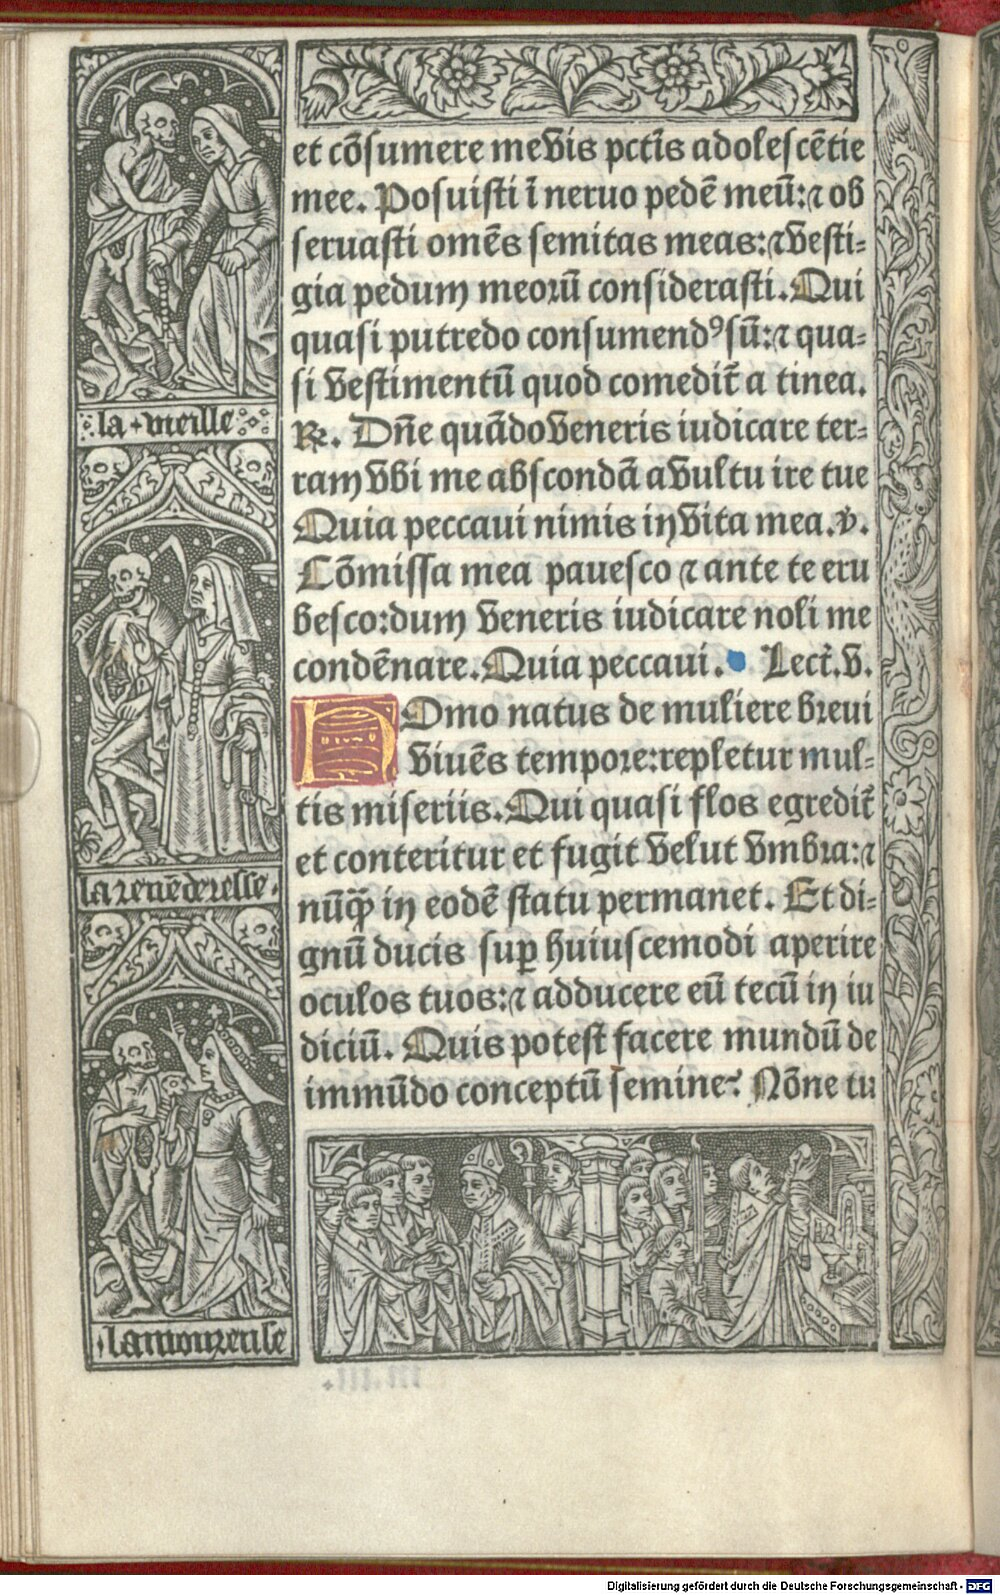 et cōsumere me vis pctīs adolescētie
mee. Posuisti ī neruo pedē meū: ⁊ ob
seruasti omēs semitas meas: ⁊ vesti-
gia pedum meorū considerasti. Qui
quasi putredo consumendꝰ sū: ⁊ qua-
si vestimentū quod comedit̄ a tinea.
℟. Dn̄e quādo veneris iudicare ter-
ram vbi me abscondā a vultu ire tue
Quia peccaui nimis in vita mea. ℣.
Cōmissa mea pauesco ⁊ ante te eru
besco: dum veneris iudicare noli me
condēnare. Quia peccaui. Lect̄. v.
HOmo natus de muliere breui
viuēs tempore: repletur mul-
tis miseriis. Qui quasi flos egredit̄
et conteritur et fugit velut vmbra: ⁊
nūꝙ̄ in eodē statu permanet. Et di-
gnū ducis suꝑ huiuscemodi aperire
oculos tuos: ⁊ adducere eū tecū in iu
diciū. Quis potest facere mundū de
immūdo conceptū semine? Nōne tu
la vieille
la reuēderesse
lamoureuse
Digitalisierung gefördert durch die Deutsche Forschungsgemeinschaft - DFG